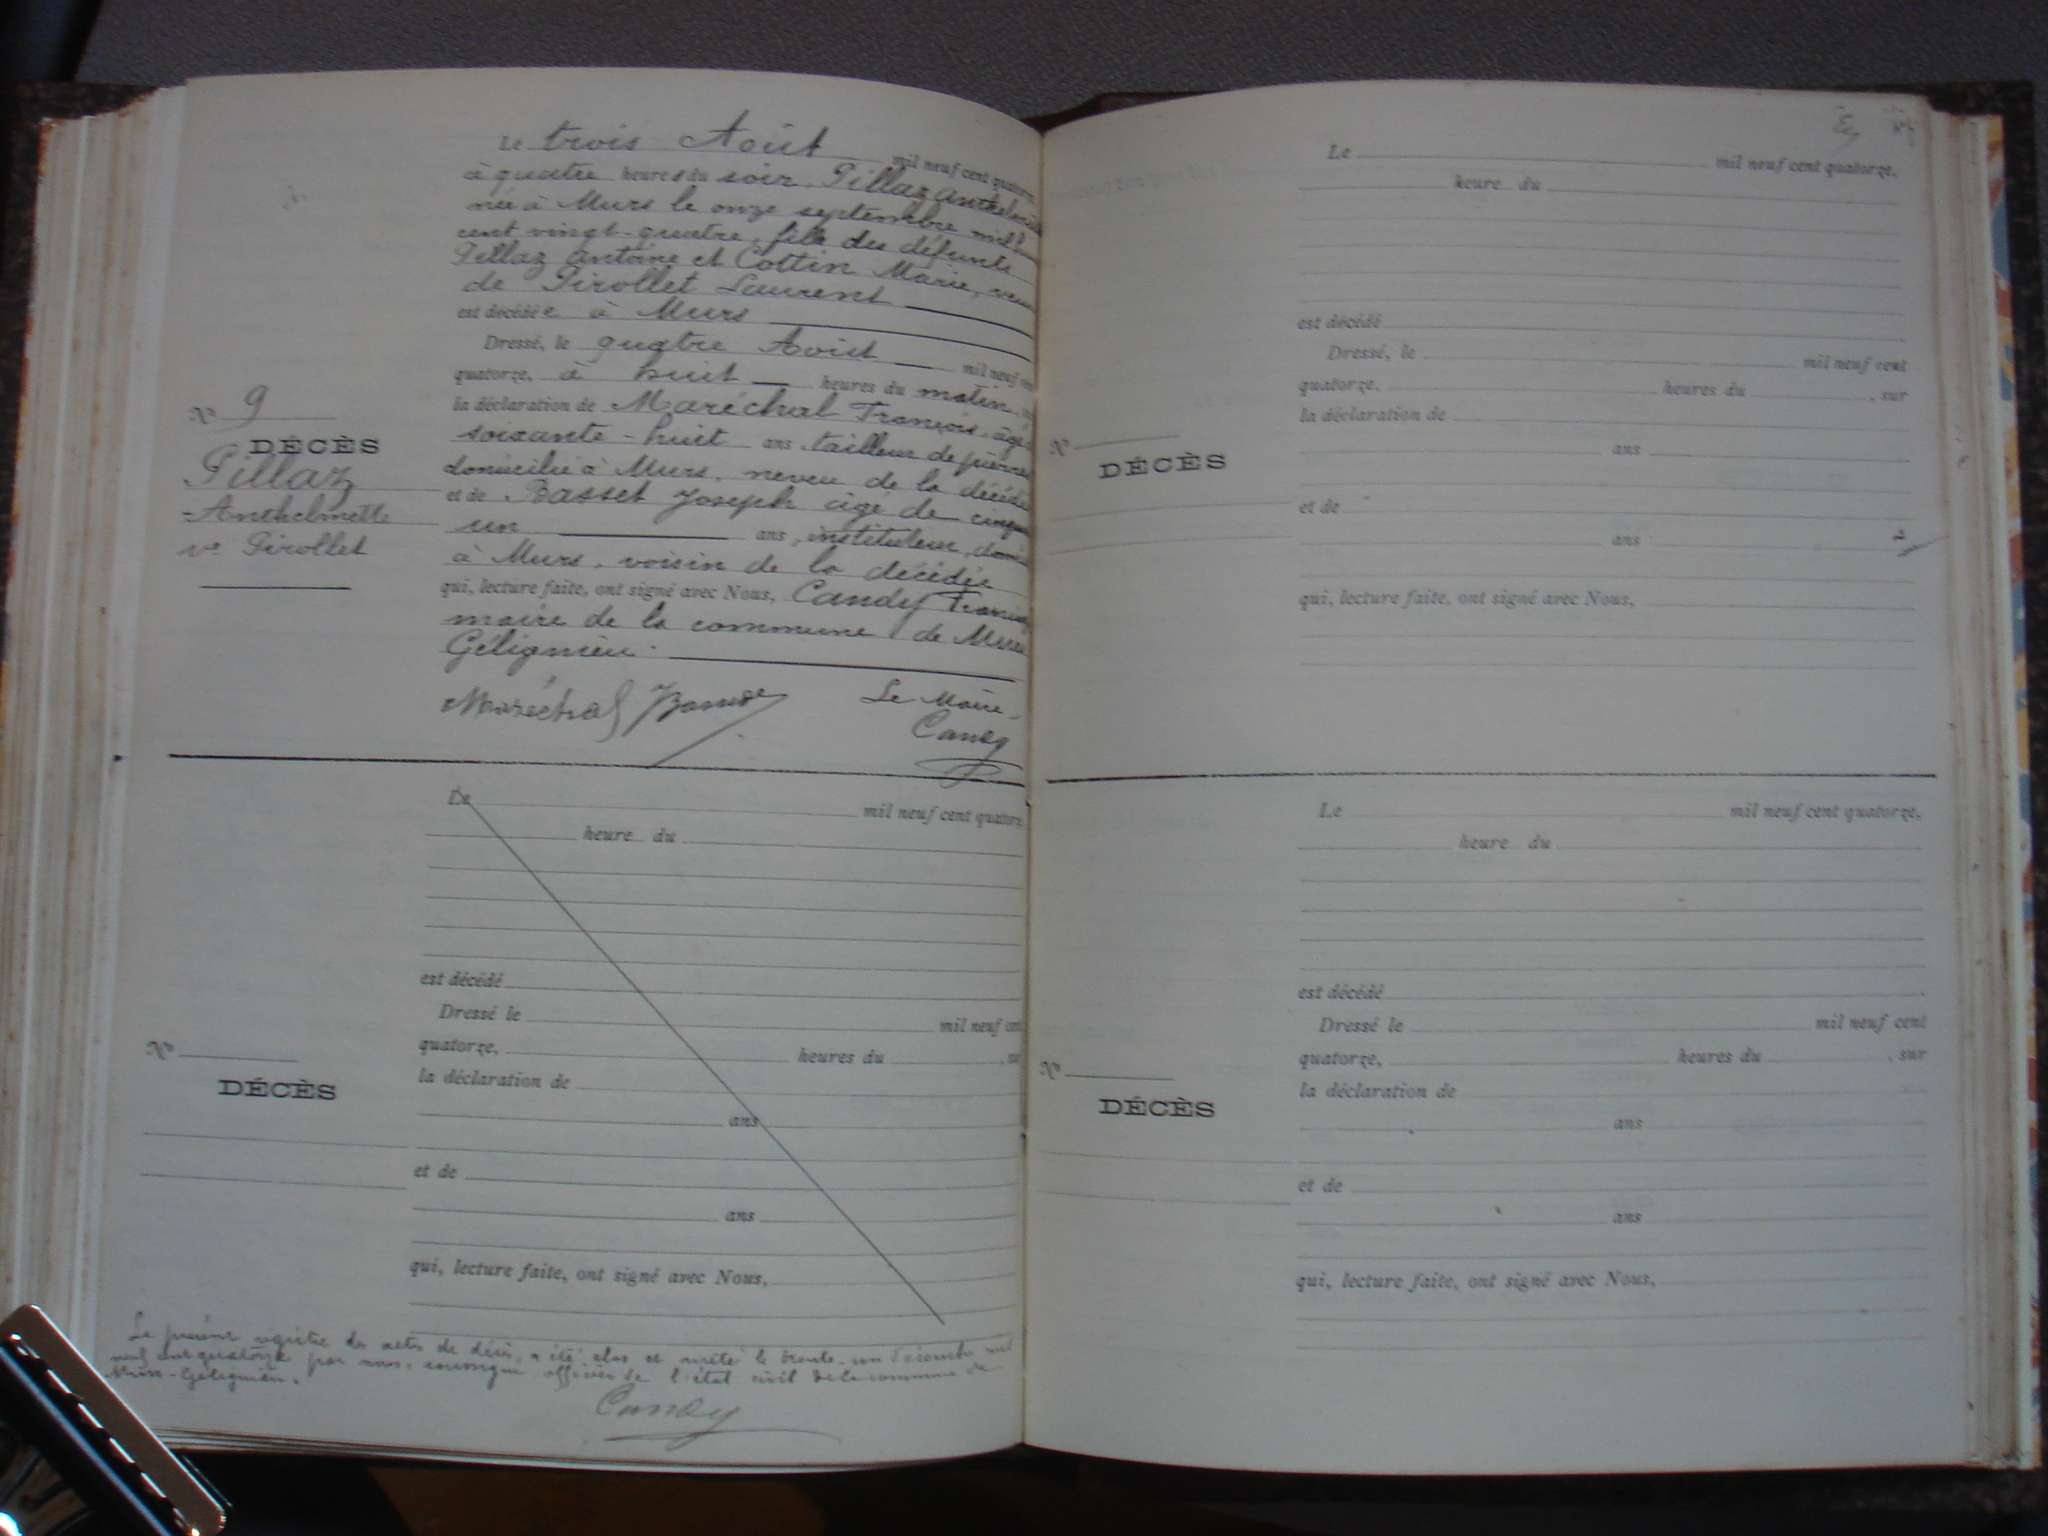 Le trois Août mil neuf cent quatorze
à quatre heures du soir, Pillaz Anthelmette
née à Murs le onze septembre mil huit
cent vingt-quatre, fille des défunts
Pillaz Antoine et Cottin Marie, veuve
de Pirollet Laurent
est décédée à Murs
Dressé, le quatre Août mil neuf cent
quatorze, à huit heures du matin,
la déclaration de Maréchal François, âgé
N° 9
DÉCÈS
Pillaz
Anthelmette
ve Pirollet
soixante-huit ans tailleur de pierres
domicilié à Murs, neveu de la décédée
et de Basset Joseph âgé de
un ans, instituteur,
à Murs, voisin de la décédée
qui, lecture faite, ont signé avec Nous, Candy
maire de la commune de Murs
Gélignieu.
Maréchal Le Maire
Candy
Le mil neuf cent quatorze
heure du
est décédé
Dressé le mil neuf cent
quatorze, heures du , sur
N°
DÉCÈS
la déclaration de
ans
et de
ans
qui, lecture faite, ont signé avec Nous,
Le présent registre des actes de décès, a été clos et arrêté le trente-un Décembre mil
neuf cent quatorze par nous, officier de l'état civil de la commune de
Murs-Gélignieu.
Candy
Le mil neuf cent quatorze,
heure du
est décédé
Dressé, le mil neuf cent
quatorze, heures du , sur
la déclaration de
N°
DÉCÈS
ans
et de
ans
qui, lecture faite, ont signé avec Nous,
Le mil neuf cent quatorze,
heure du
est décédé
Dressé le mil neuf cent
quatorze, heures du , sur
N°
DÉCÈS
la déclaration de
ans
et de
ans
qui, lecture faite, ont signé avec Nous,